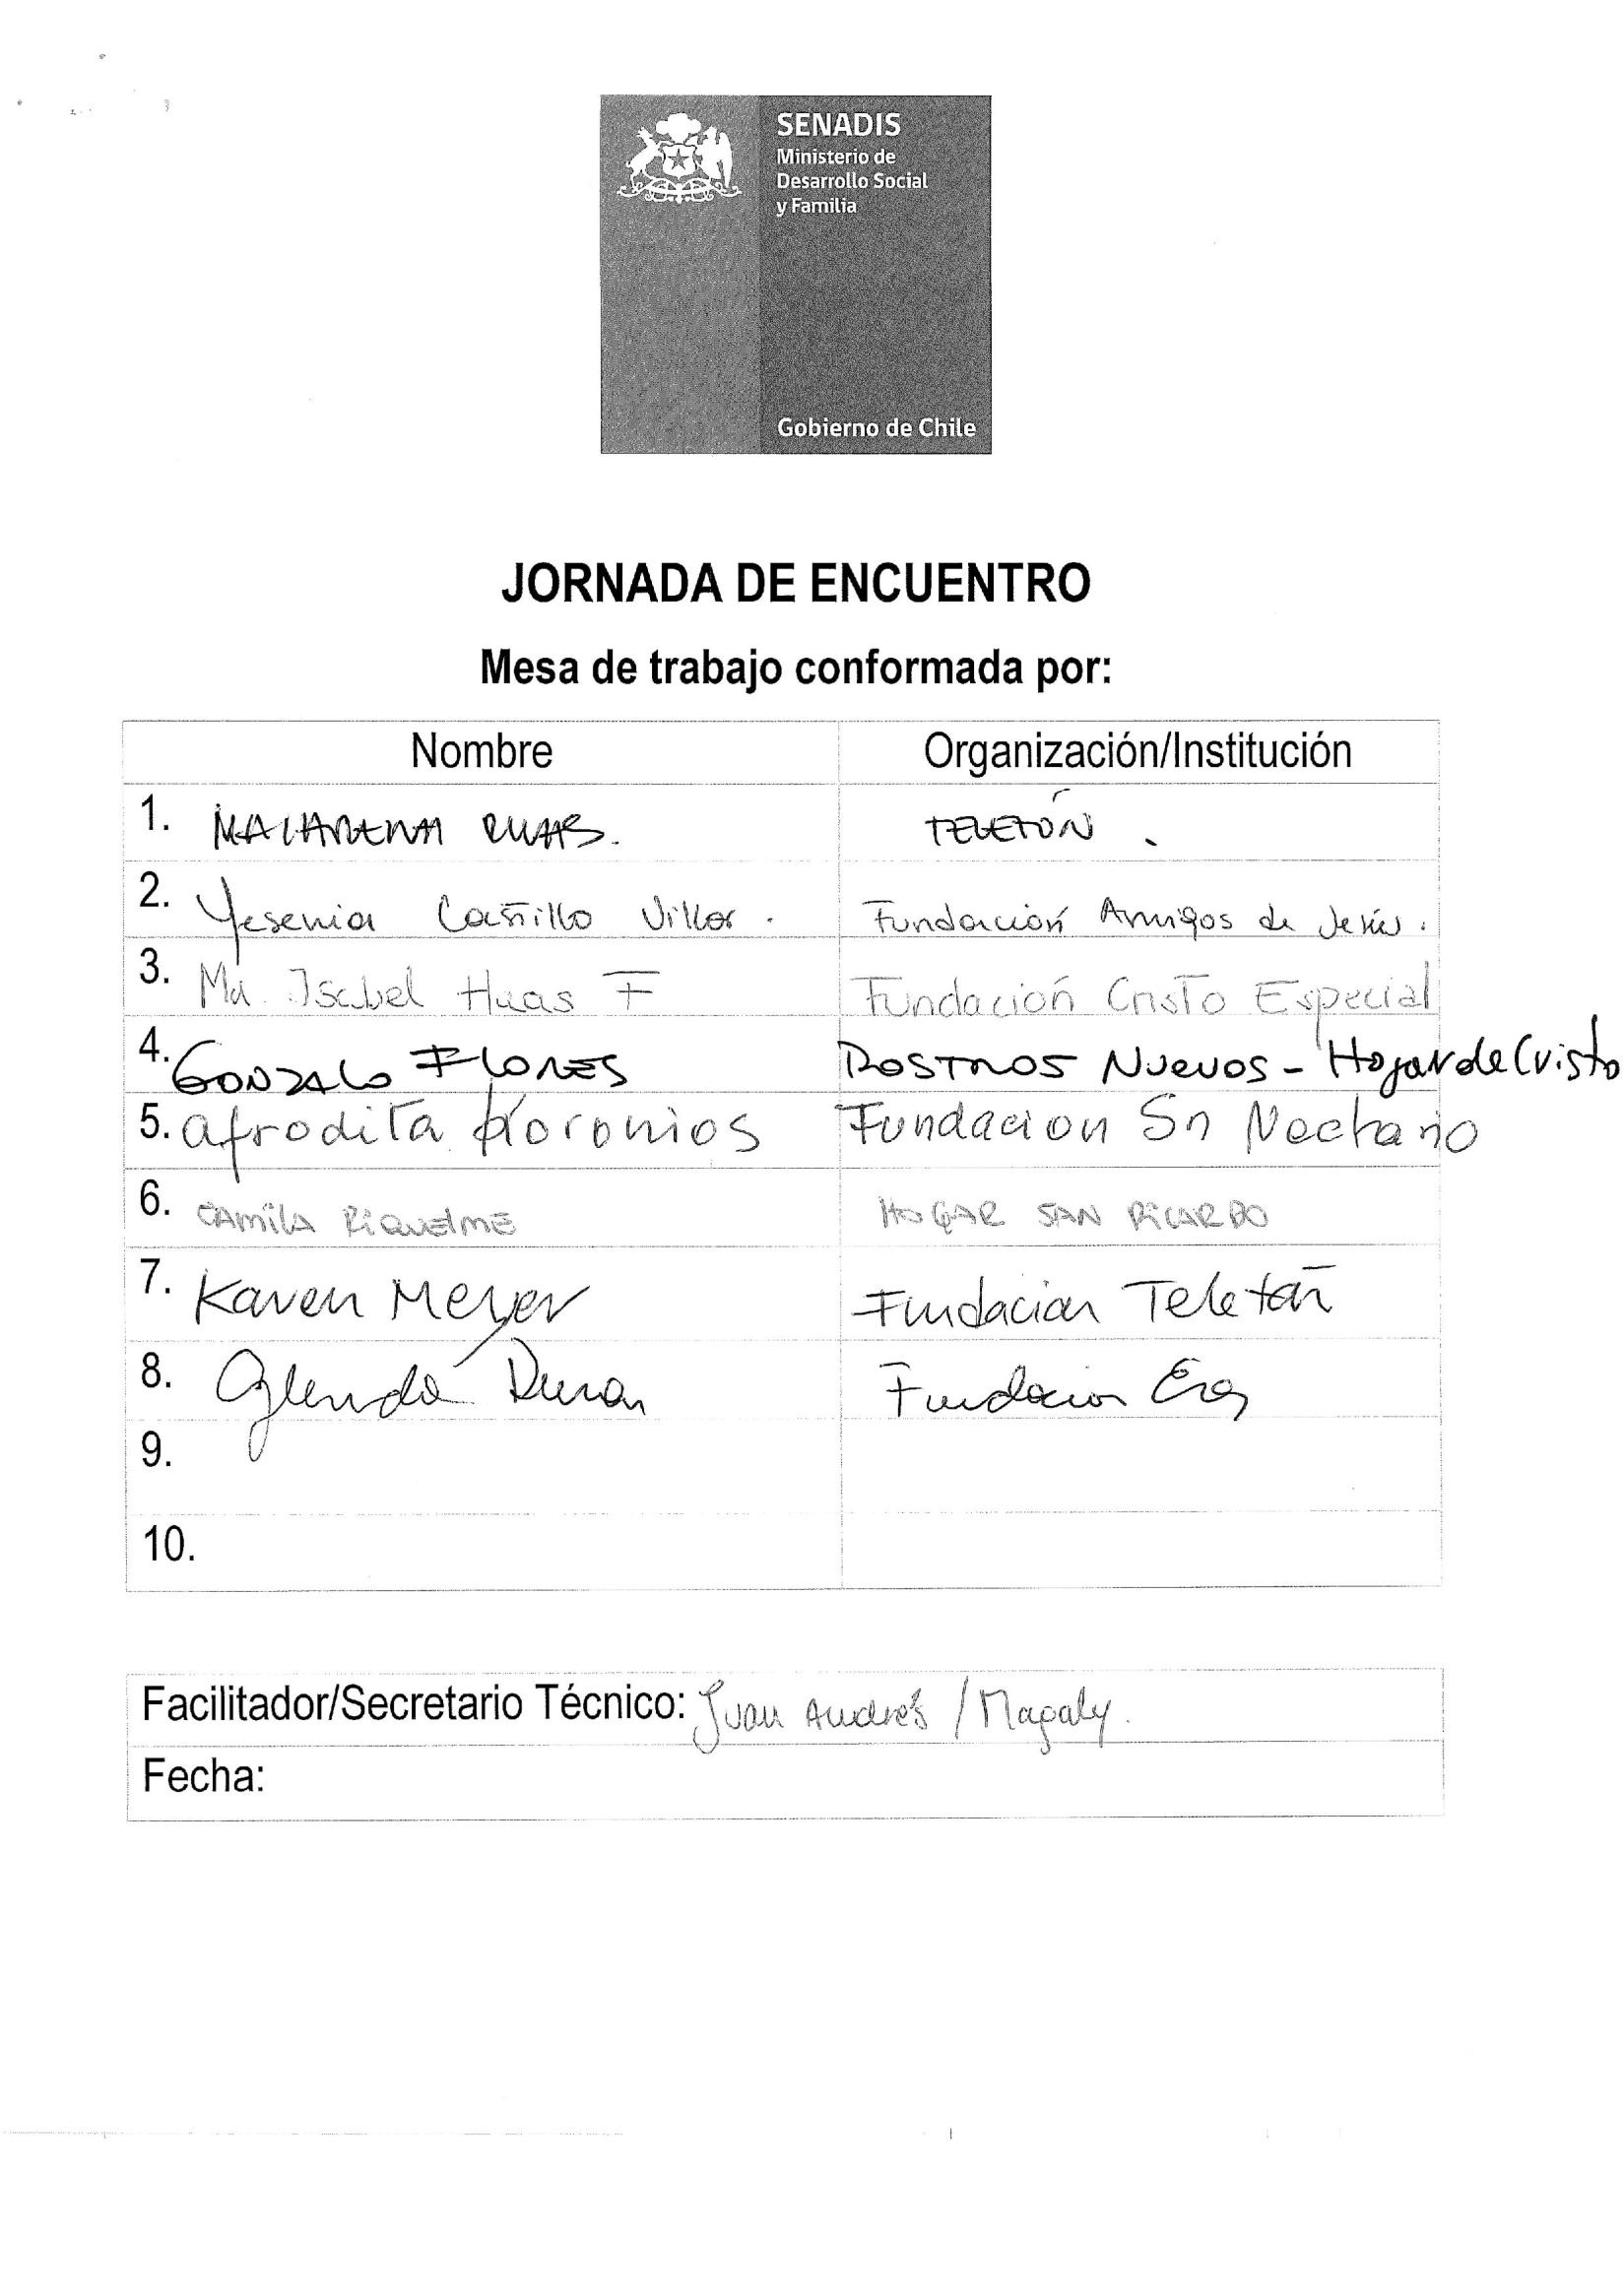 SENADIS
Ministerio de
Desarrollo Social
y Familia
Gobierno de Chile
JORNADA DE ENCUENTRO
Mesa de trabajo conformada por:
Nombre Organización/Institución
1. MACARENA TELETÓN.
2. Yesenia Castillo Villar. Fundación Amigos de Jesús.
3. Ma. Isabel Haas F Fundación Cristo Especial
4. GONZALO FLORES ROSTROS NUEVOS - Hogar de Cristo
5. Afrodita Fundacion Sn Nectario
6. CAMILA RIQUELME HOGAR SAN RICARDO
7. Karen Meyer Fundación Teletón
8. Glenda Duran Fundacion
9.
10.
Facilitador/Secretario Técnico: Juan Andrés / Magaly.
Fecha: